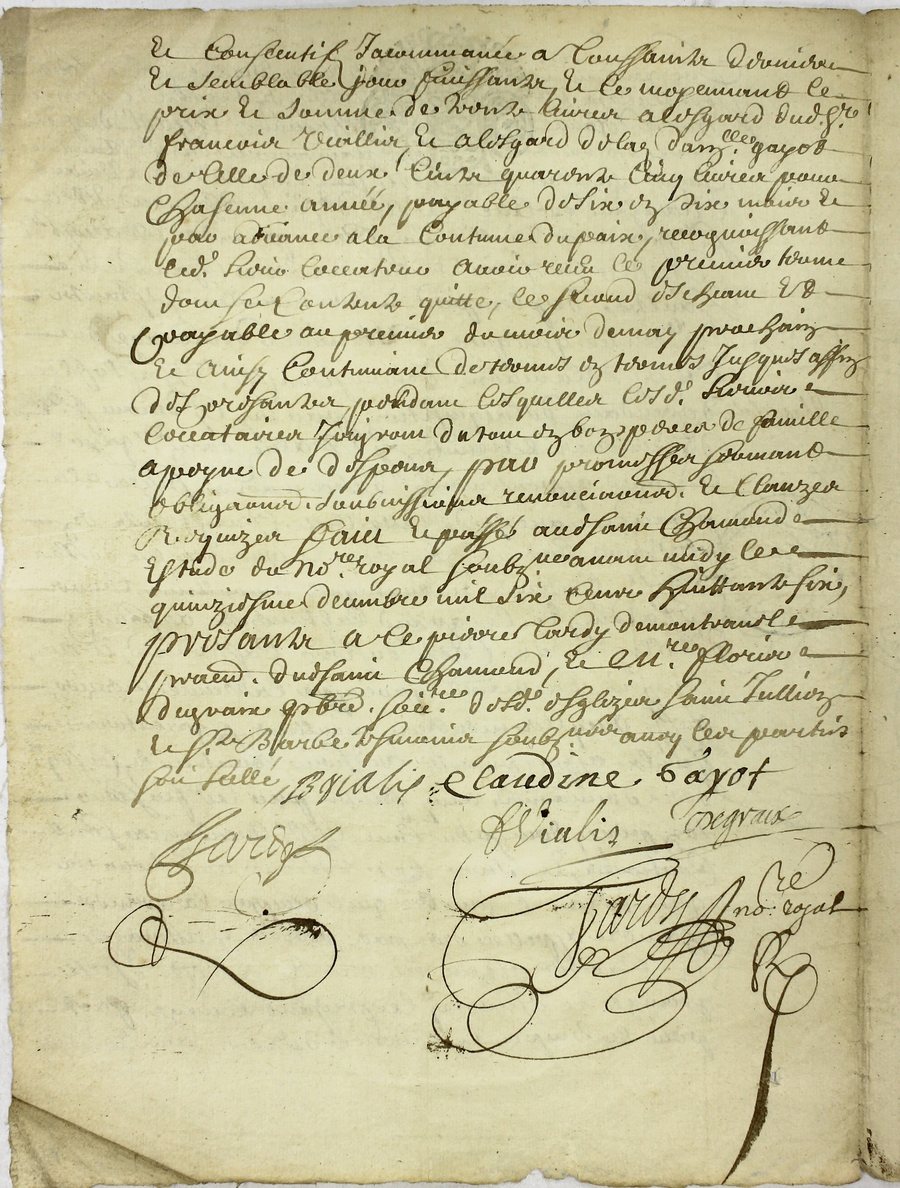 et Consecutifs Jacommancée a Toussaintz derniere
et semblable jour finissantz, et ce moyennant le
prix et somme de trente livres a lesgard dud. Sr.
francois viallis, et a lesgard de laz. dam.lle gayot
de celle de deux Centz quarente Cinq livres pour
Chascune année, payable de six ez six mois et
par advance a la Coutume du paix, recognoissant
led. sieur Locateur avoir receu le premier terme
dont se Contente quitte, le second escheant et
payable au premier du mois demay prochain
et Ainsy Continuant determes ez termes Jusques affin
des presantes, pendant lesquelles lesd. sieurs
Locataires Jouyront du tout ez bons peres de famille
a peyne de despens, par promesses serment
obliga͠ons. soubmissions renonciaons. et Clauzes
Requizes faict et passé audsainct Chamond
Estude du no.re royal soubz.né avant midy le
quinziesme decembre mil six Centz huittante six,
presantz a ce pierre tardy demontrans
praed. dudsainct Chamond, et M.re floris
degraix pbre. soc.re desd. esglizes saint Jullien
et S.te Barbe tesmoins soubz.nés avec les parties
soit sellé BVialis Claudine Gayot
Tardy FVialis Degraix
Tardy no.re royal
R